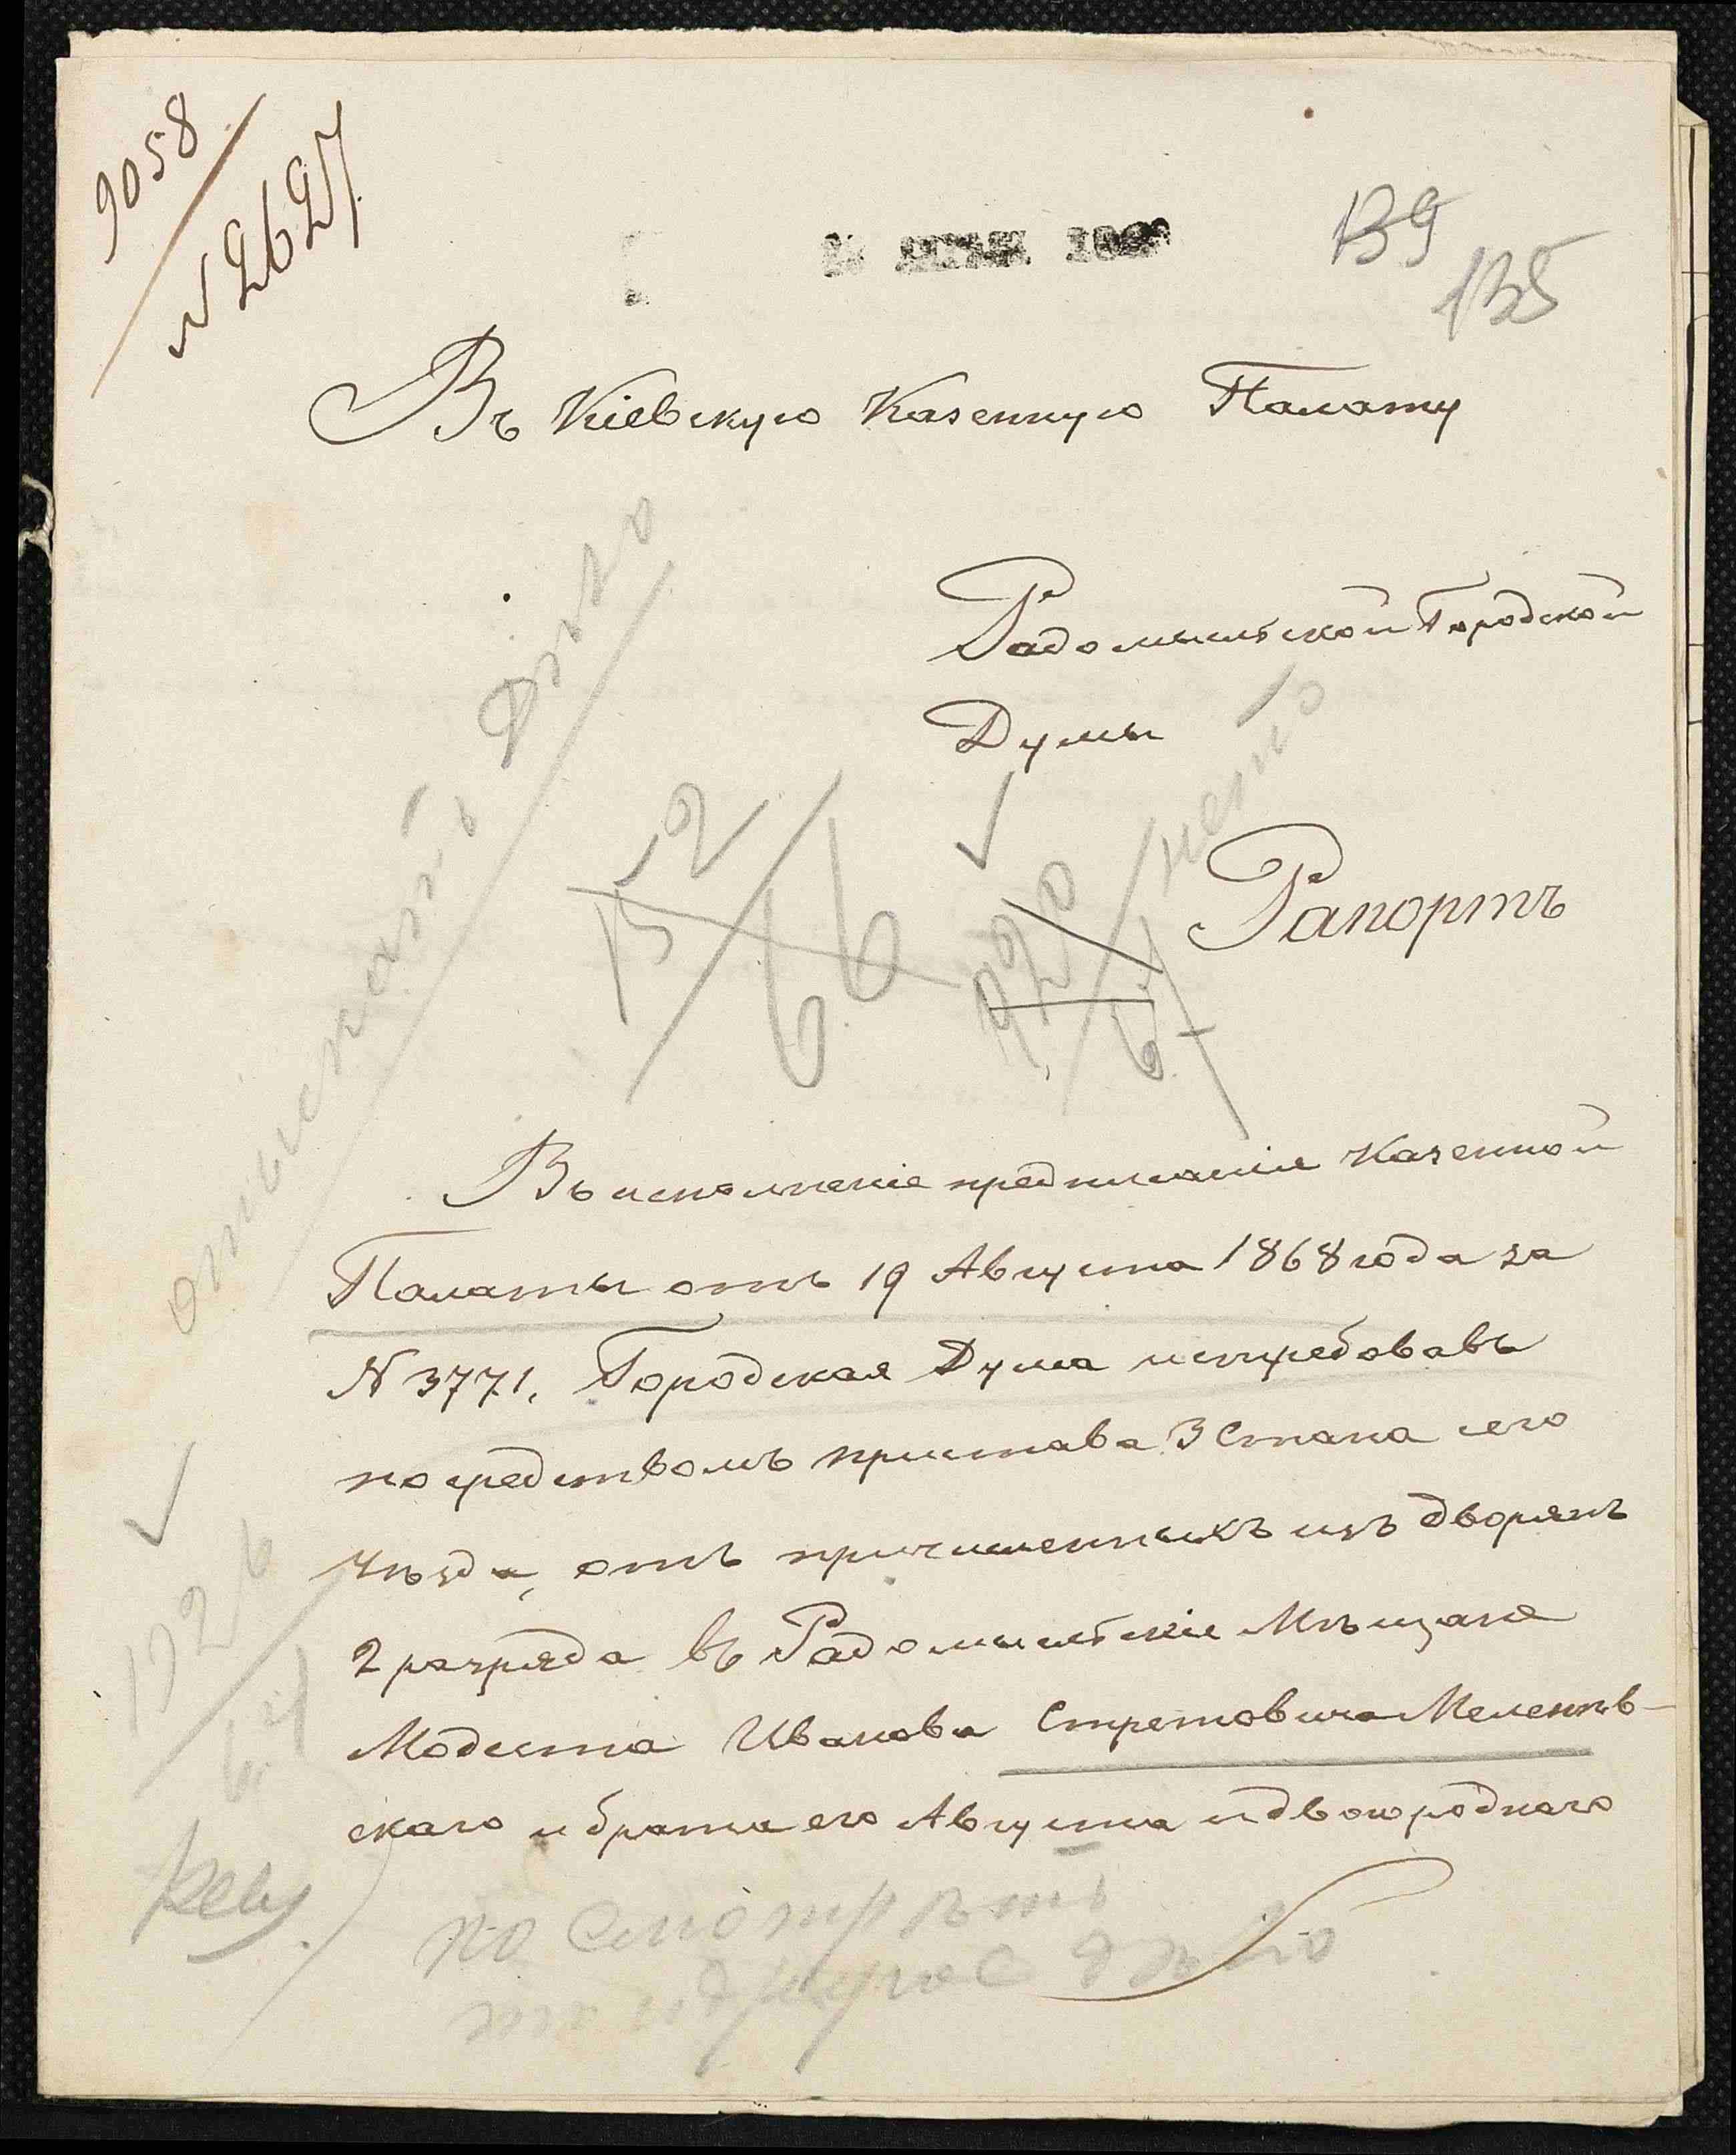 9058
N 2627
139
135
Въ Кіевскую Казенную Палату
Радомысльской Городской
Думы
Рапортъ
отыскать дѣло
152
66
нетъ
Въ исполненіе предписанія Казенной
Палаты отъ 19 Августа 1868 года за
N 3771, Городская Дума истребовавъ
посредствомъ пристава 3 Стана сего
Уѣзда, отъ причисленныхъ изъ дворянъ
2 разряда въ Радомысльскіе Мѣщане
Модеста Иванова Стретовича Мелентѣв-
скаго и брата его Августа и двоюроднаго
по смотрѣть